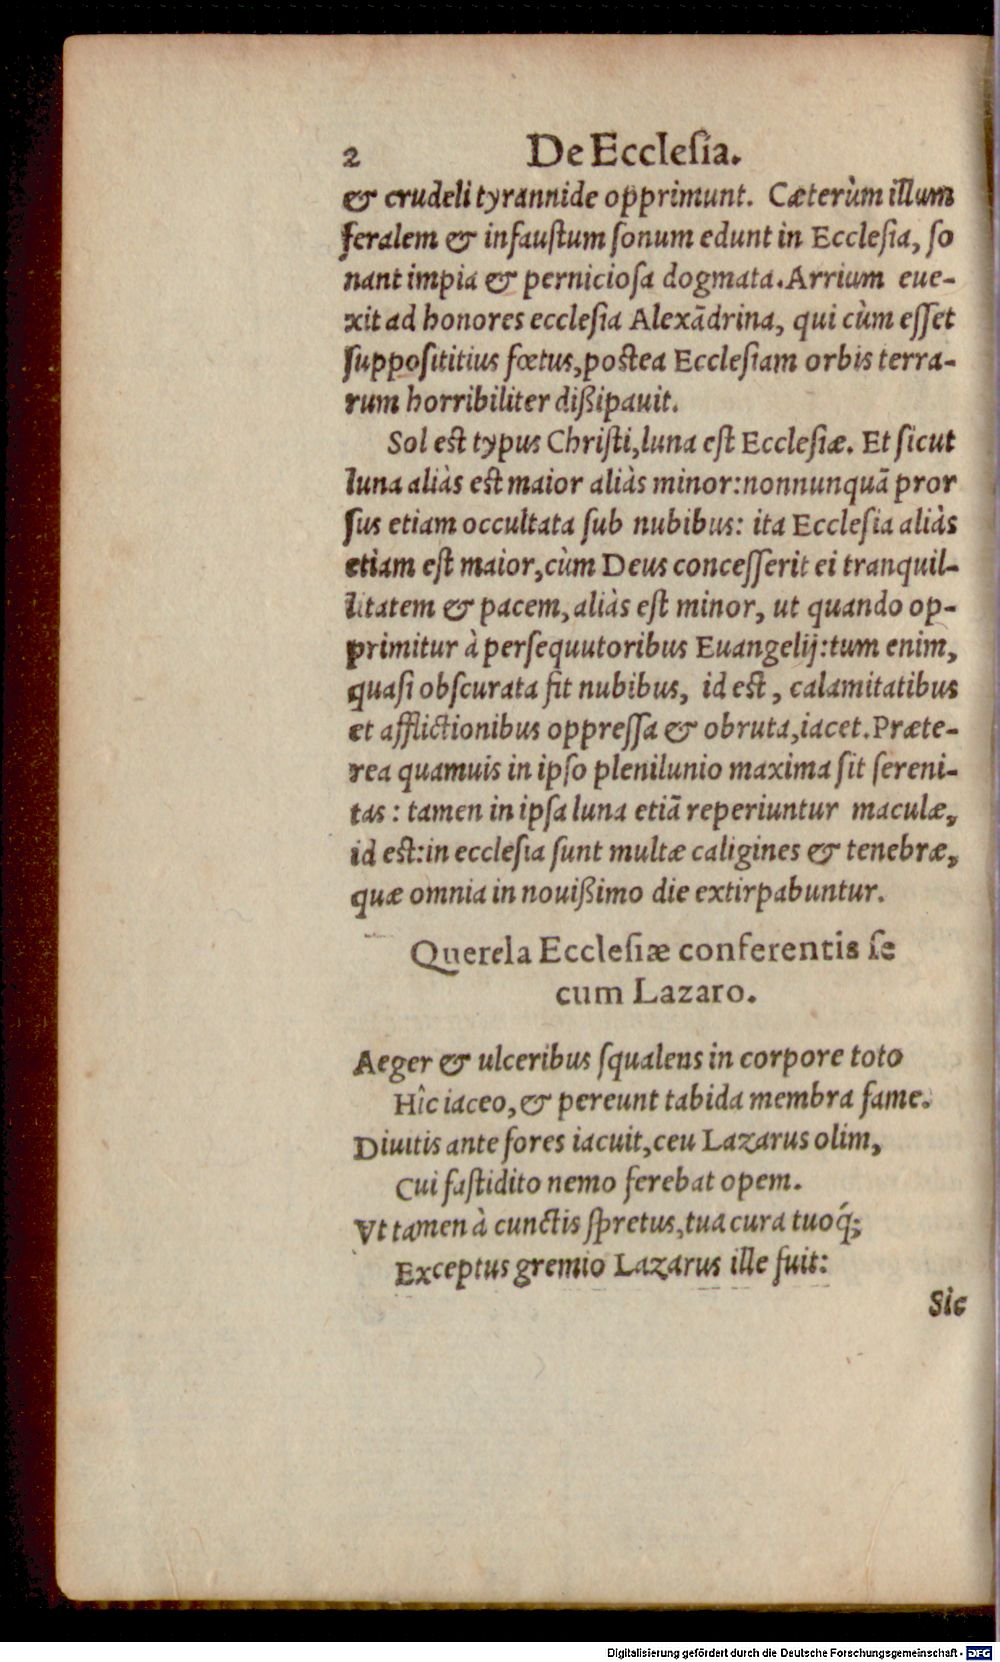 2 De Ecclesia.
& crudeli tyrannide opprimunt. Cæterùm illum
feralem & infaustum sonum edunt in Ecclesia, so
nant impia & perniciosa dogmata. Arrium eue-
xit ad honores ecclesia Alexādrina, qui cùm esset
supposititius fœtus, postea Ecclesiam orbis terra-
rum horribiliter dißipauit.
Sol est typus Christi, luna est Ecclesiæ. Et sicut
luna aliàs est maior aliàs minor: nonnunquā pror
sus etiam occultata sub nubibus: ita Ecclesia aliàs
etiam est maior, cùm Deus concesserit ei tranquil-
litatem & pacem, aliàs est minor, ut quando op-
primitur à persequutoribus Euangelij: tum enim,
quasi obscurata fit nubibus, id est, calamitatibus
et afflictionibus oppressa & obruta, iacet. Præte-
rea quamuis in ipso plenilunio maxima sit sereni-
tas: tamen in ipsa luna etiā reperiuntur maculæ,
id est: in ecclesia sunt multæ caligines & tenebræ,
quæ omnia in nouißimo die extirpabuntur.
Querela Ecclesiæ conferentis se
cum Lazaro.
Aeger & ulceribus squalens in corpore toto
Hîc iaceo, & pereunt tabida membra fame.
Diuitis ante fores iacuit, ceu Lazarus olim,
Cui fastidito nemo ferebat opem.
Vt tamen à cunctis spretus, tua cura tuoq́;
Exceptus gremio Lazarus ille fuit:
Sic
Digitalisierung gefördert durch die Deutsche Forschungsgemeinschaft - DFG